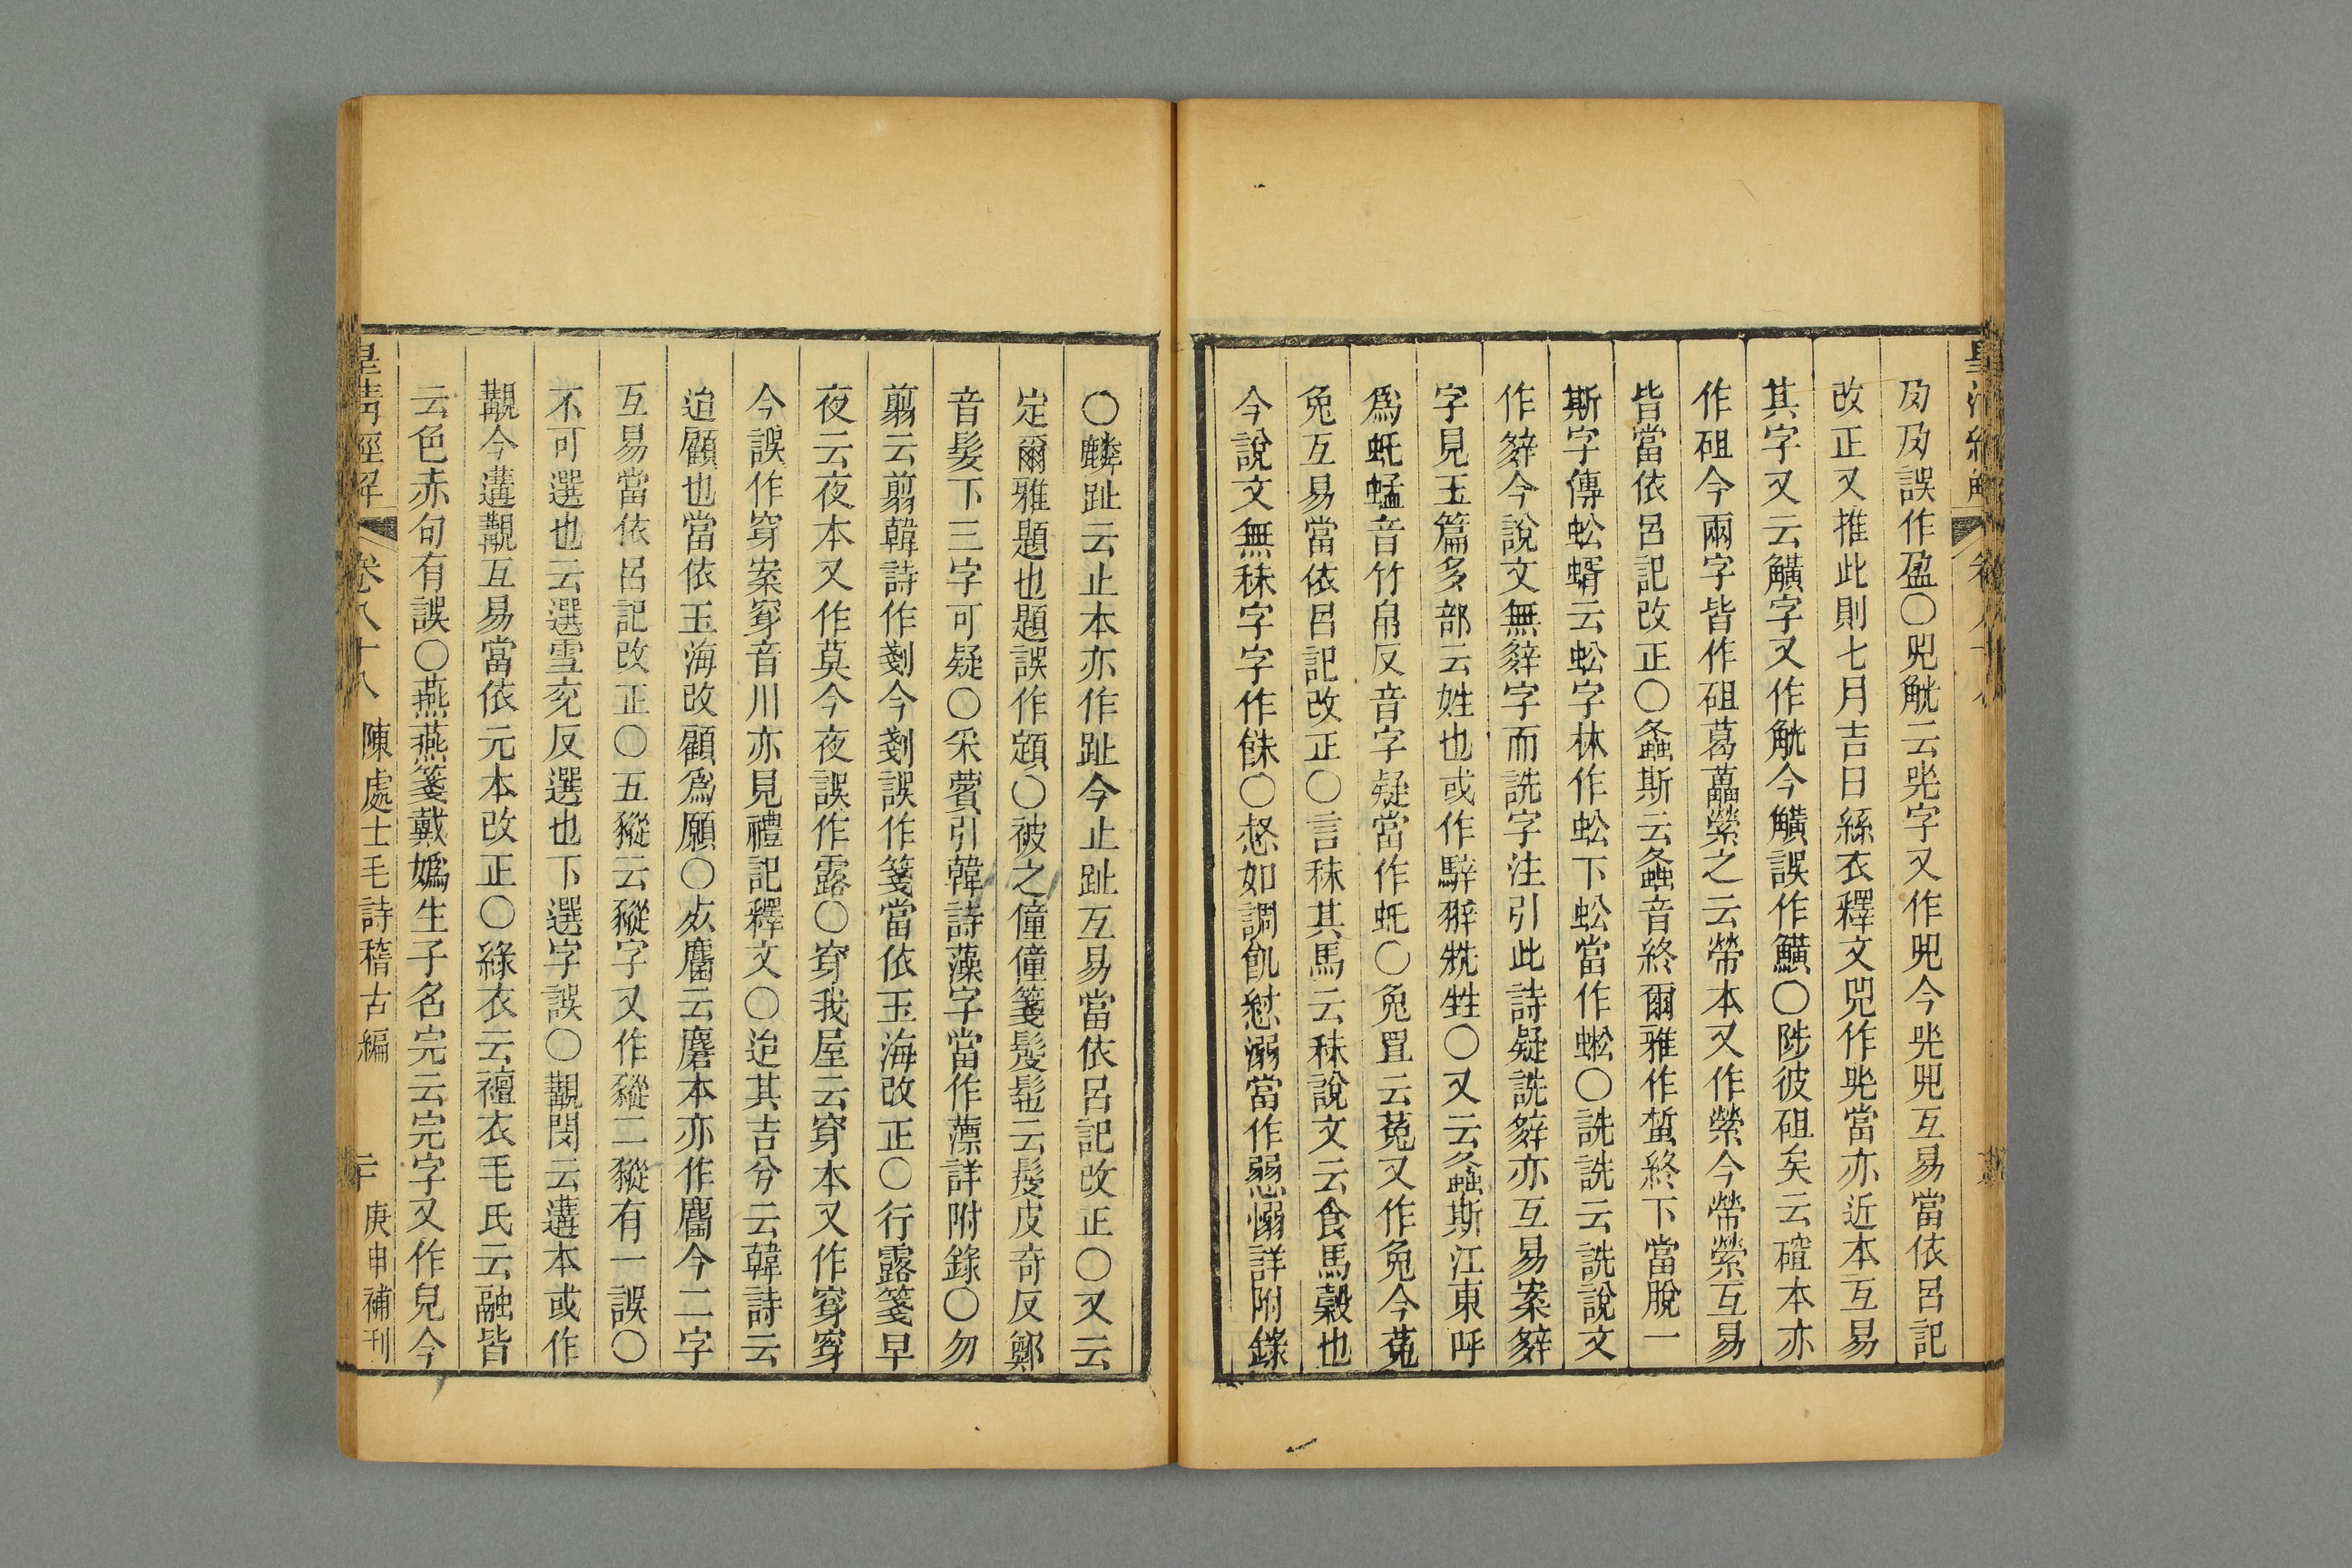 皇清經解 卷八十八
夃夃誤作盈〇兕觥云𠒅字又作兕今𠒅兕互易當依呂記
改正又推此則七月吉日絲衣釋文兕作𠒅當亦近本互易
其字又云觵字又作觥今觵誤作鱑〇陟彼砠矣云碹本亦
作砠今兩字皆作砠葛藟縈之云帶本又作縈今帶縈互易
皆當依呂記改正〇螽斯云螽音終爾雅作蜤終下當脫一
斯字傳蚣蝑云蚣字林作蚣下蚣當作蜙〇詵詵云詵說文
作𨐔今說文無𨐔字而詵字注引此詩疑詵𨐔亦互易案𨐔
字見玉篇多部云姓也或作騂𨐔兟甡〇又云螽斯江東呼
為虴蜢音竹帛反音字疑當作虴〇兔罝云菟又作兔今菟
兔互易當依呂記改正〇言秣其馬云秣說文云食馬穀也
今說文無秣字字作䬴〇惄如調飢愵溺當作惄愵詳附錄
〇麟趾云止本亦作趾今止趾互易當依呂記改正〇又云
定爾雅題也題誤作顁〇被之僮僮箋髲髢云髲皮寄反鄭
音髮下三字可疑〇采薲引韓詩藻字當作薸詳附錄〇勿
翦云翦韓詩作剗今剗誤作箋當依玉海改正〇行露箋早
夜云夜本又作莫今夜誤作露〇穿我屋云穿本又作穿穿
今誤作穿案穿音川亦見禮記釋文〇迨其吉兮云韓詩云
迨願也當依玉海改顧為願〇𣦸麕云麏本亦作麕今二字
互易當依呂記改正〇五豵云豵字又作豵二豵有一誤〇
不可選也云選雪兗反選也下選字誤〇覯閔云遘本或作
覯今遘覯互易當依元本改正〇綠衣云襢衣毛氏云融皆
云色赤句有誤〇燕燕箋戴媯生子名完云完字又作兒今
皇清經解 卷八十八 陳處士毛詩稽古編 二十 庚申補刊